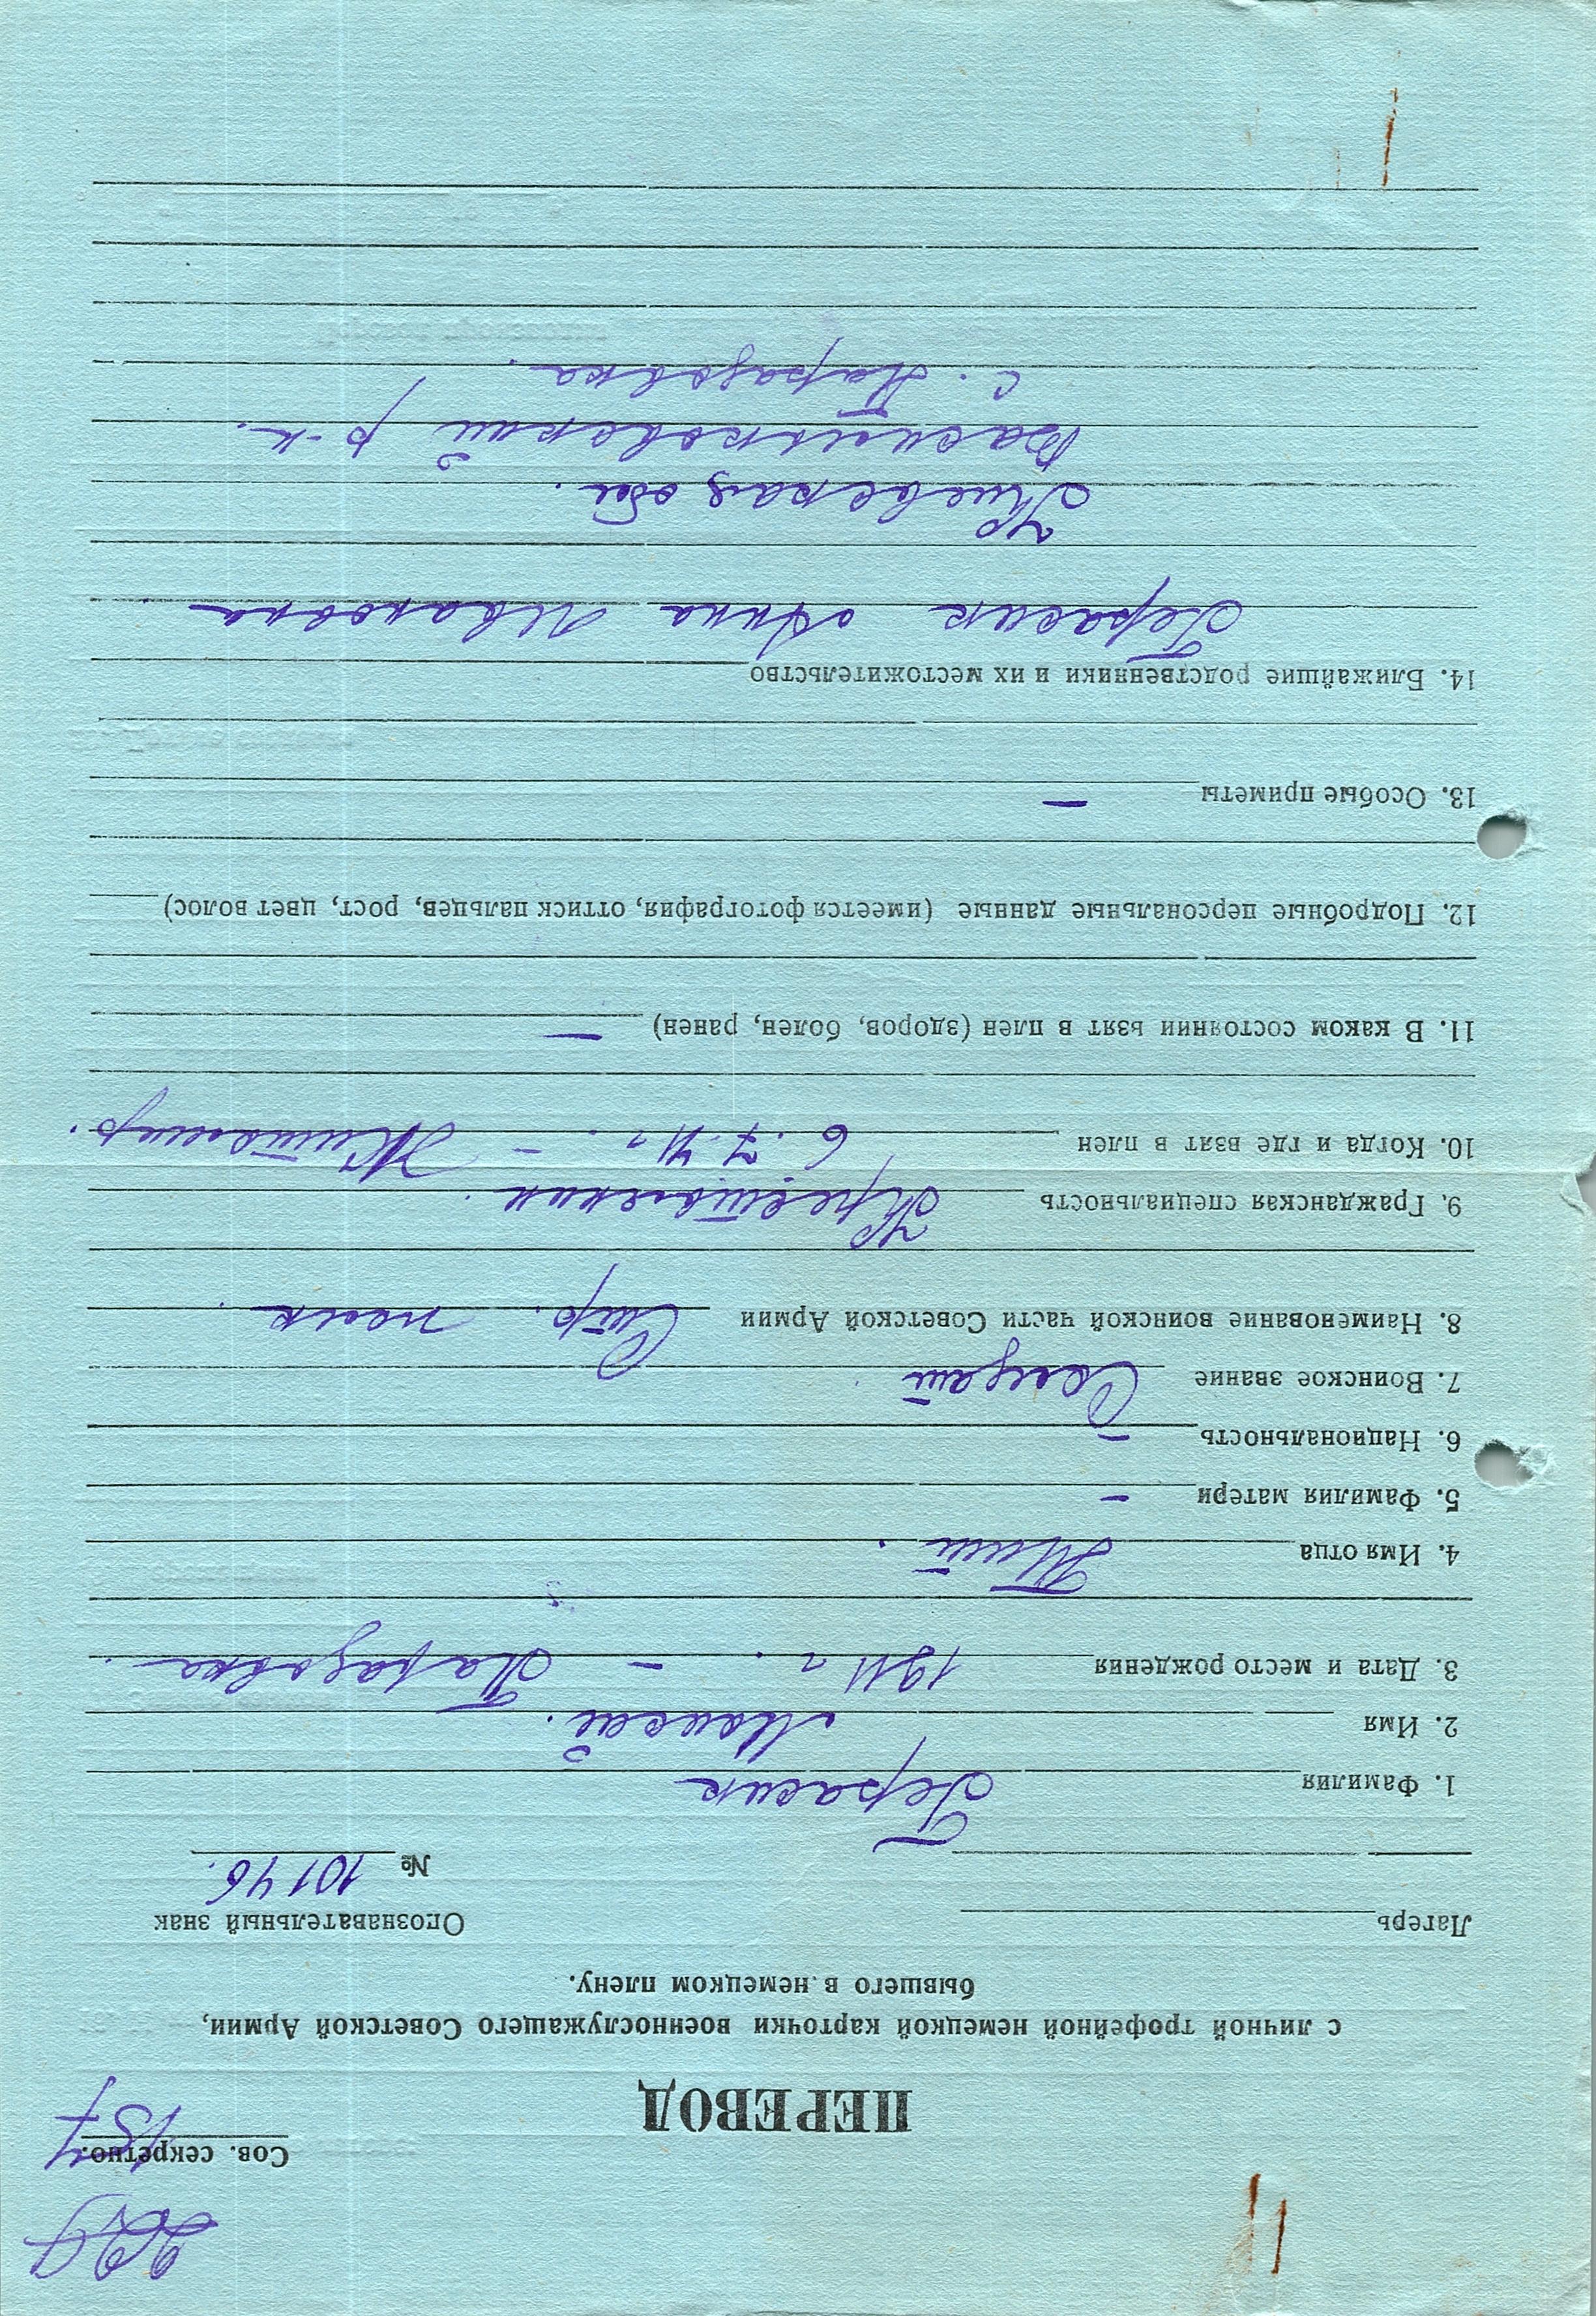 Сов. секретно.
157
ПЕРЕВОД
с личной трофейной немецкой карточки военнослужащего Советской Армии,
бывшего в немецком плену.
Лагерь
Опознавательный знак
№ 10146.
1. Фамилия Герасик
2. Имя Моисей.
3. Дата и место рождения 1911 г. – Парадовка.
4. Имя отца Тит.
5. Фамилия матери –
6. Национальность –
7. Воинское звание Солдат
8. Наименование воинской части Советской Армии Стр. полк.
9. Гражданская специальность Крестьянин.
10. Когда и где взят в плен 6.7.41 г. – Житомир.
11. В каком состоянии взят в плен (здоров, болен, ранен) –
12. Подробные персональные данные (имеется фотография, оттиск пальцев, рост, цвет волос)
13. Особые приметы –
14. Ближайшие родственники и их местожительство
Герасик Анна Ивановна
Киевская обл.
Васильковский р-н.
с. Парадовка.